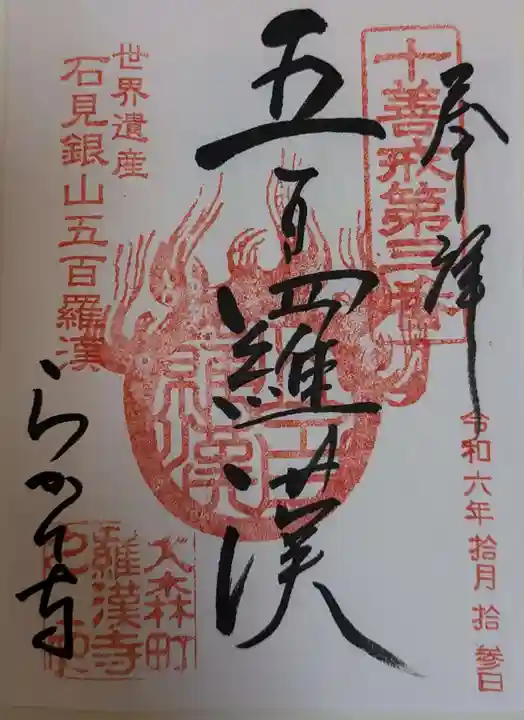 奉拝
十善戒第三番
令和六年拾月拾参日
五百羅漢
五百羅漢
世界遺産
石見銀山五百羅漢
らかん寺
大森町
羅漢寺